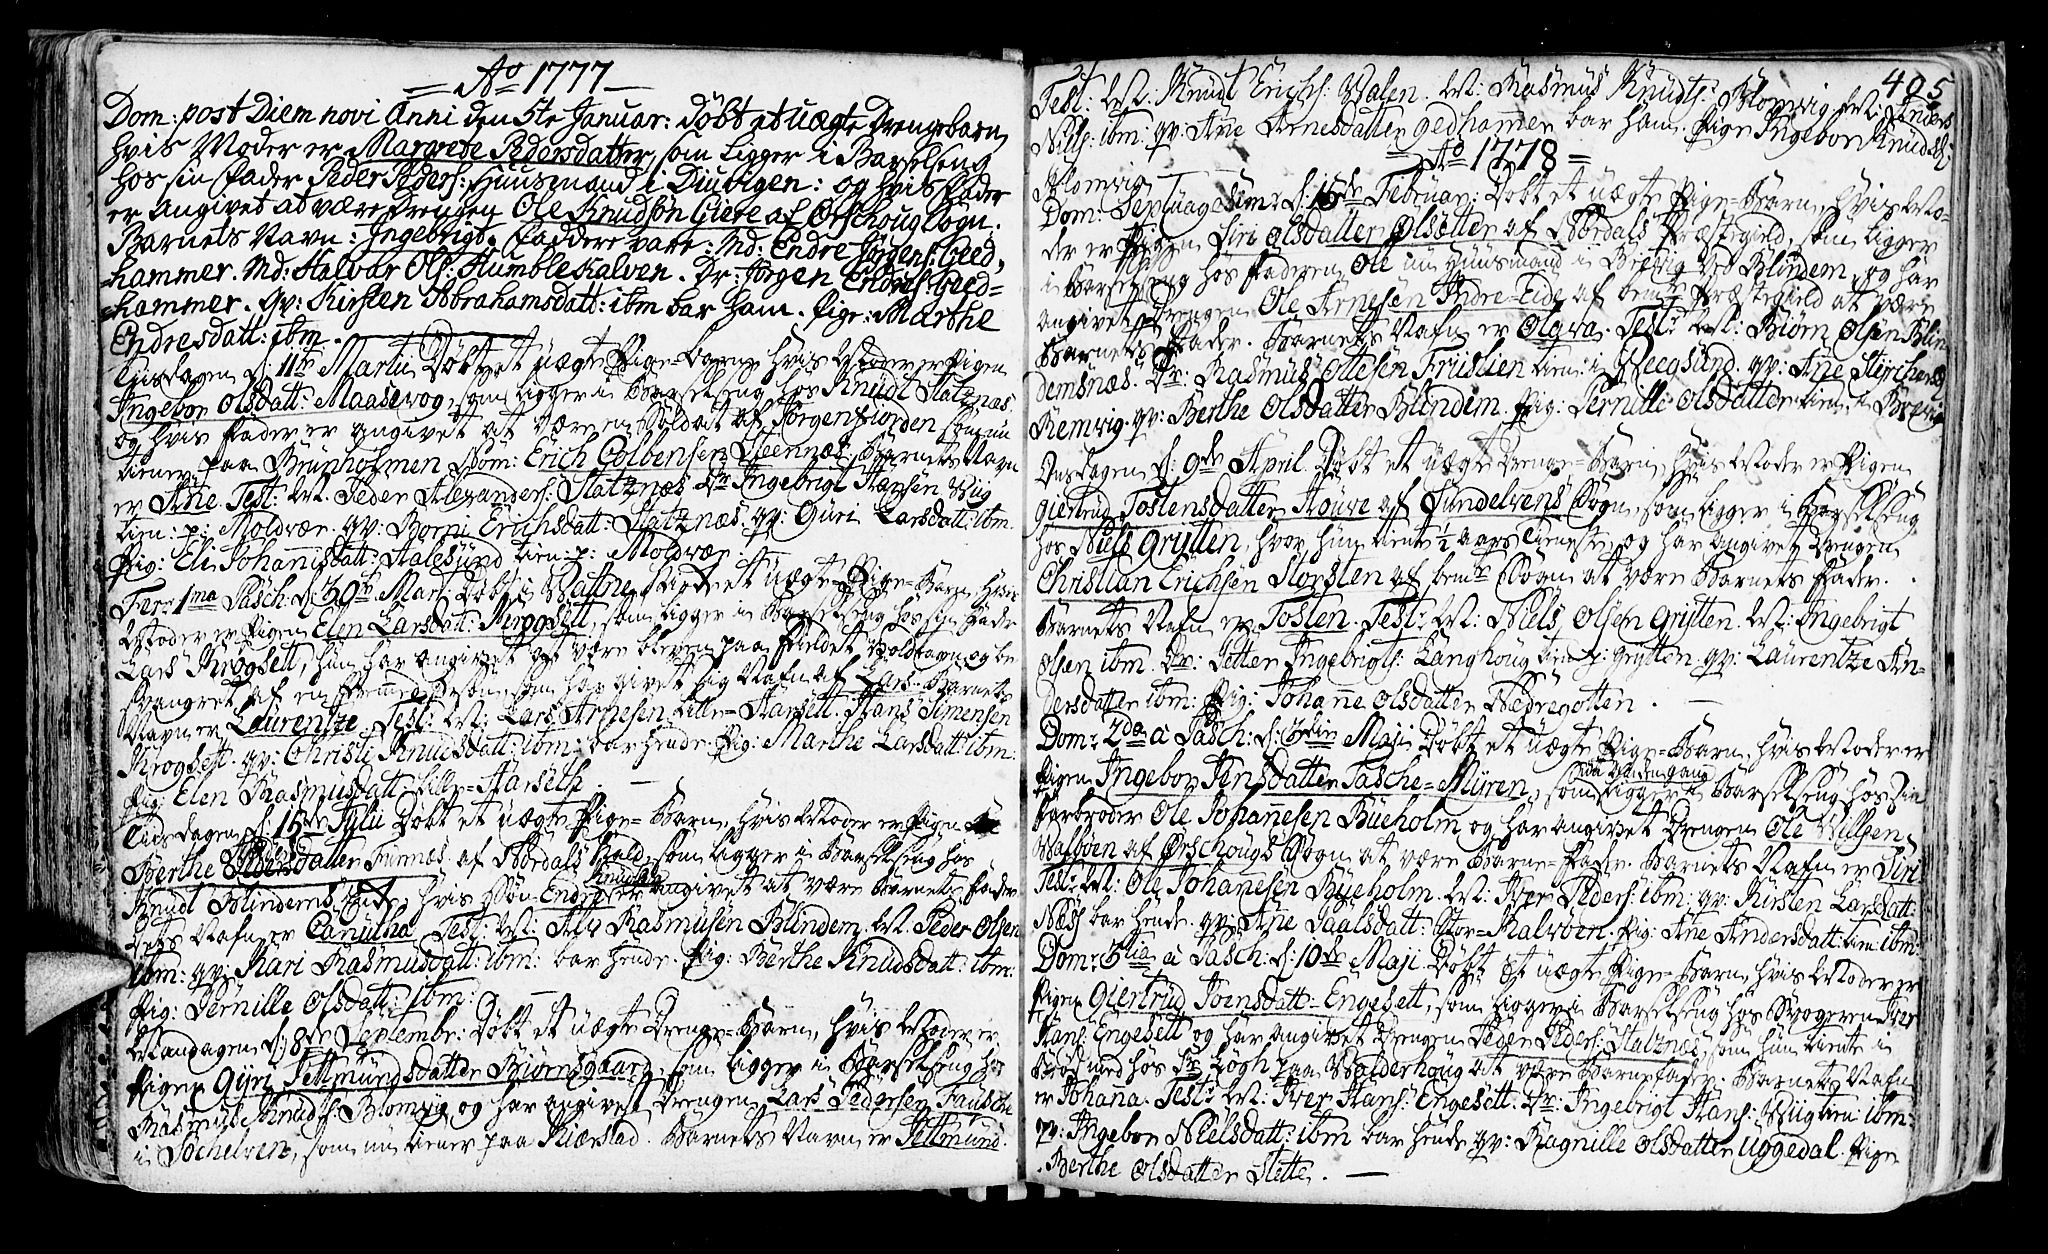 = Ao 1777 =
Dom: post Diem novi Anni den 5te Januar: døbt et uægte Drengebarn
hvis Moder er Margrete Pedersdatter, som ligger i Barselseng
hos sin Fader Peder Peders: Huusmand i Diuvigen: og hvis Fader
er angivet at være Drengen Ole Knudsøn Giere af Ørschoug Sogn.
Barnets Navn: Ingebrigt. Faddere vare: Md: Endre Jørgens: Gied,
=hammer. Md: Halvar Ols: Humblekalven. Dr: Jørgen Endres: Gied=
=hammer. qv: Kirsten Abrahamsdatt: ibm bar ham. Pige: Marthe
Endresdatt: ibm.
Tiisdagen d: 11te Martii Døbt et uægte Pige=Barn, hvis Moder er Pigen
Ingebor Olsdatt: Maasevog, som ligger i Barselseng hos Knudt Slatznæs.
og hvis Fader er angivet at være en Soldat af Jørgenfiorden, som nu
tiener paa Brunholmen Nom: Erich Colbensen Steennæs. Barnets Navn
er Ane. Test: Md. Peder Alexanders: Slatznæs Dr: Ingebrigt Hansen Wiig
tien: p: Moldvær. qv: Borni Erichsdatt: Slatznæs. qv: Guri Larsdatt: ibm.
Pig: Eli Johannisdatt: Aalesund tien: p: Moldvær.
Fer: 1ma Pasch: d: 30te Mart: Døbt i Vattne Kirke et uægte Pige=Barn, hvis
Moder er Pigen Elen Larsdatt: Krogsett, som ligger i Barselseng hos sin Fader
Lars Krogsett, hun har angivet at være bleven paa Fieldet voldtagen og be
svangret af en fremmed Person, som har givet sig Nafn af Lars. Barnets
Navn er Laurentze. Test: Md: Lars Arnesen Lille=Harsett. Hans Simensen
Krogset. qv: Christi Knudsdatt: ibm: bar hende. Pig: Marthe Larsdatt: ibm:
Pig: Elen Rasmusdatt: Lille=Harseth.
Tiisdagen d: 15de Julii Døbt et uægte Pige=Barn, hvis Moder er Pigen
Berthe Pedersdatter Furnæs af Nordals Gield, som ligger i Barselseng hos
Knud Blindems, hvis Søn Endre Knudsen er angivet at være Barnets Fader
dets Nafn er Canutha. Test: Md: Aly Rasmusen Blindem. Md: Peder Olsen
ibm: qv: Kari Rasmusdatt: ibm: bar hende. Pig: Berthe Knudsdatt: ibm:
Pig: Pernille Olsdatt: ibm:
Mandagen d: 8de Septembr: Døbt et uægte Drenge=Barn, hvis Moder er
Pigen Gyri Pettmundsdatter Biørnsgaard, som ligger i Barselseng hos
Rasmus Knuds: Blomvig og har angivet Drengen Lars Pedersen Fausche
i Sochelven, som nu tiener paa Kierstad. Barnets Navn er Pettmund.
405
Test: Md: Knudt Erichs: Walen. Md: Rasmus Knudts: Blomvig. Md: Anders
Nils: ibm: qv: Ane Arnesdatter Gedhammer bar ham. Pige Ingebor Knudsd:
Blomvig
= Ao 1778 =
Dom: Septuagesim: d: 15de Februar: Døbt et uægte Pige=Barn, hvis Mo=
der er Pigen Siri Olsdatter Olsetter af Nordals Præstegield, som ligger
i Barselseng hos Faderen Ole nu Huusmand i Brevig ved Blindem, og har
angivet Drengen Ole Arnesen Indre=Eide af bemte Præstegield at være
Barnets Fader. Barnets Nafn er Olava. Test: Md: Biørn Olsen Blin
demsnæs. Dr: Rasmus Ottesen Friislien tien: i Weegsund. qv: Ane Styrchersd:
Remvig. qv: Berthe Olsdatter Blindem. Pig: Pernille Olsdatter tien: i Brevig
Onsdagen d: 9de April. Døbt et uægte Drenge=Barn, hvis Moder er Pigen
Giertrud Tostensdatter Houve af Sundelvens Sogn, som ligger i Barselseng
hos Niels Grytten, hvor hun tiente ½ aars Tieneste, og har angivet Drengen
Christian Erichsen Korsten af bemte Sogn at være Barnets Fader.
Barnets Nafn er Tosten. Test: Md: Niels Olsen Grytten. Md: Ingebrigt
Olsen ibm. Dr: Petter Ingebrigts: Langhoug tien: p: Grytten. qv: Laurentze An=
dersdatter ibm: Pig: Johanne Olsdatter Nedregotten.
Dom: 2da a Pasch: d: 3die Maji Døbt et uægte Pige=Barn, hvis Moder er
Pigen Ingebor Jensdatter Pasche=Myren, som ligger i Barselseng hos sin
Farbroder Ole Johannesen Bueholm og har angivet Drengen Ole Nillsen
Walbøen af Ørschougs Sogn at være Barne=Fader. Barnets Nafn er Siri
Test: Md: Ole Johannesen Bueholm. Md: Iver Peders: ibm. qv: Kirsten Larsdatt:
Næss bar hende. qv: Ane Paalsdatt: Stor=Kalvøen. Pig: Ane Andersdatt: tien: ibm:
Dom: 3tia a Pasch: d: 10de Maji Døbt et uægte Pige=Barn, hvis Moder er
Pigen Giertrud Joensdatt: Engesett, som ligger i Barselseng hos Svogeren Iver
Hans: Engesett og har angivet Drengen Peder Peders: Slatznæs, som hun tiente i
Brød med hos Sr: Løgh paa Walderhoug at være Barnefader. Barnets Nafn
er Johanna. Test: Md: Iver Hans: Engesett. Dr: Ingebrigt Hans: Wiig tien: ibm:
qv: Ingebor Nielsdatt: ibm bar hende qv: Ragnille Olsdatter Uggedal. Pigen
Berthe Olsdatter Slette.